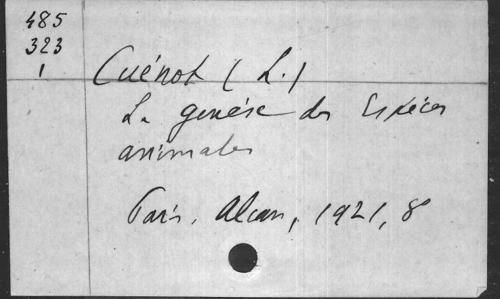 485
323
1
Cuénot (L.)
La genèse des Espèces
animales
Paris, Alcan, 1921, 8°